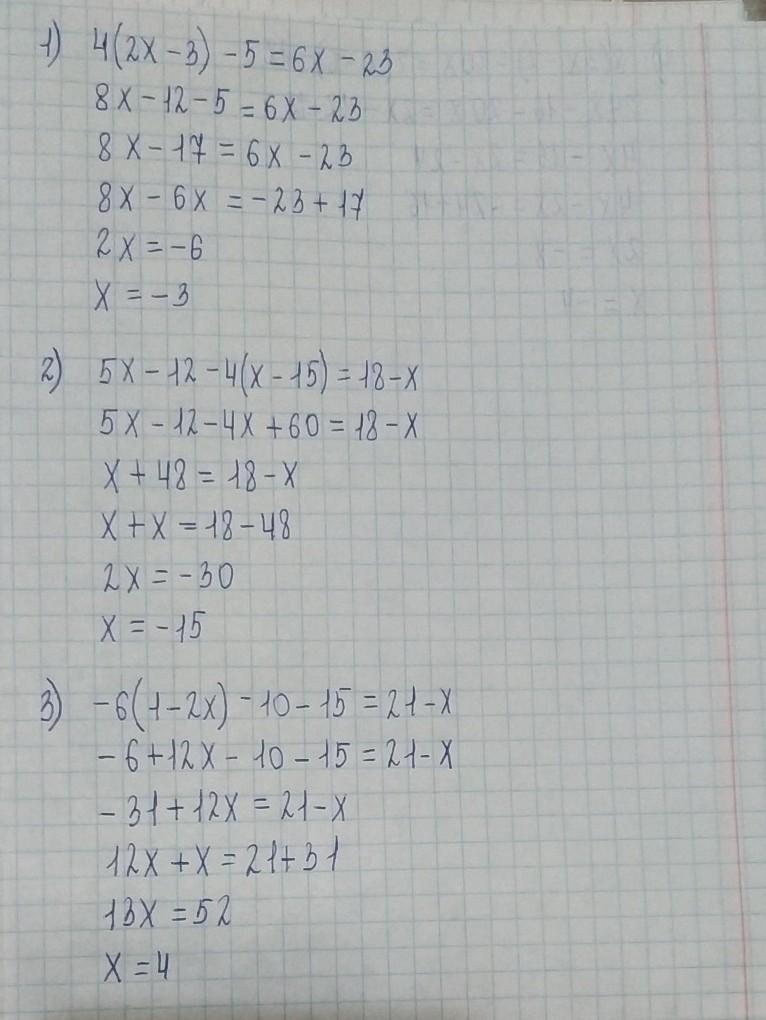 1) 4(2x-3)-5=6x-23
8x-12-5=6x-23
8x-17=6x-23
8x-6x=-23+17
2x=-6
x=-3
2) 5x-12-4(x-15)=18-x
5x-12-4x+60=18-x
x+48=18-x
x+x=18-48
2x=-30
x=-15
3) -6(1-2x)-10-15=21-x
-6+12x-10-15=21-x
-31+12x=21-x
12x+x=21+31
13x=52
x=4